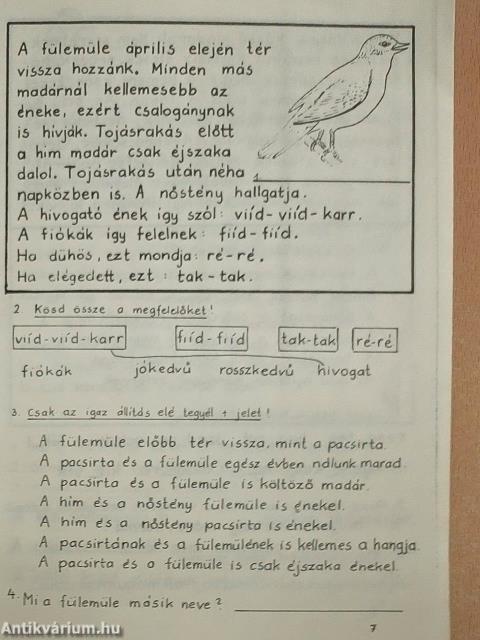 A fülemüle április elején tér
vissza hozzánk. Minden más
madárnál kellemesebb az
éneke, ezért csalogánynak
is hívják. Tojásrakás előtt
a him madár csak éjszaka
dalol. Tojásrakás után néha
napközben is. A nőstény hallgatja.
A hivogató ének igy szól: viíd-viíd-karr.
A fiókák igy felelnek: fiíd-fiíd.
Ha dühös, ezt mondja: ré-ré.
Ha elégedett, ezt: tak-tak.
1.
2. Kösd össze a megfelelőket!
viíd-viíd-karr fiíd-fiíd tak-tak ré-ré
fiókák jókedvű rosszkedvű hivogat
3. Csak az igaz állítás elé tegyél + jelet!
A fülemüle előbb tér vissza, mint a pacsirta.
A pacsirta és a fülemüle egész évben nálunk marad.
A pacsirta és a fülemüle is költöző madár.
A him és a nőstény fülemüle is énekel.
A him és a nőstény pacsirta is énekel.
A pacsirtának és a fülemülének is kellemes a hangja.
A pacsirta és a fülemüle is csak éjszaka énekel.
4. Mi a fülemüle másik neve?
7
Antikvárium.hu